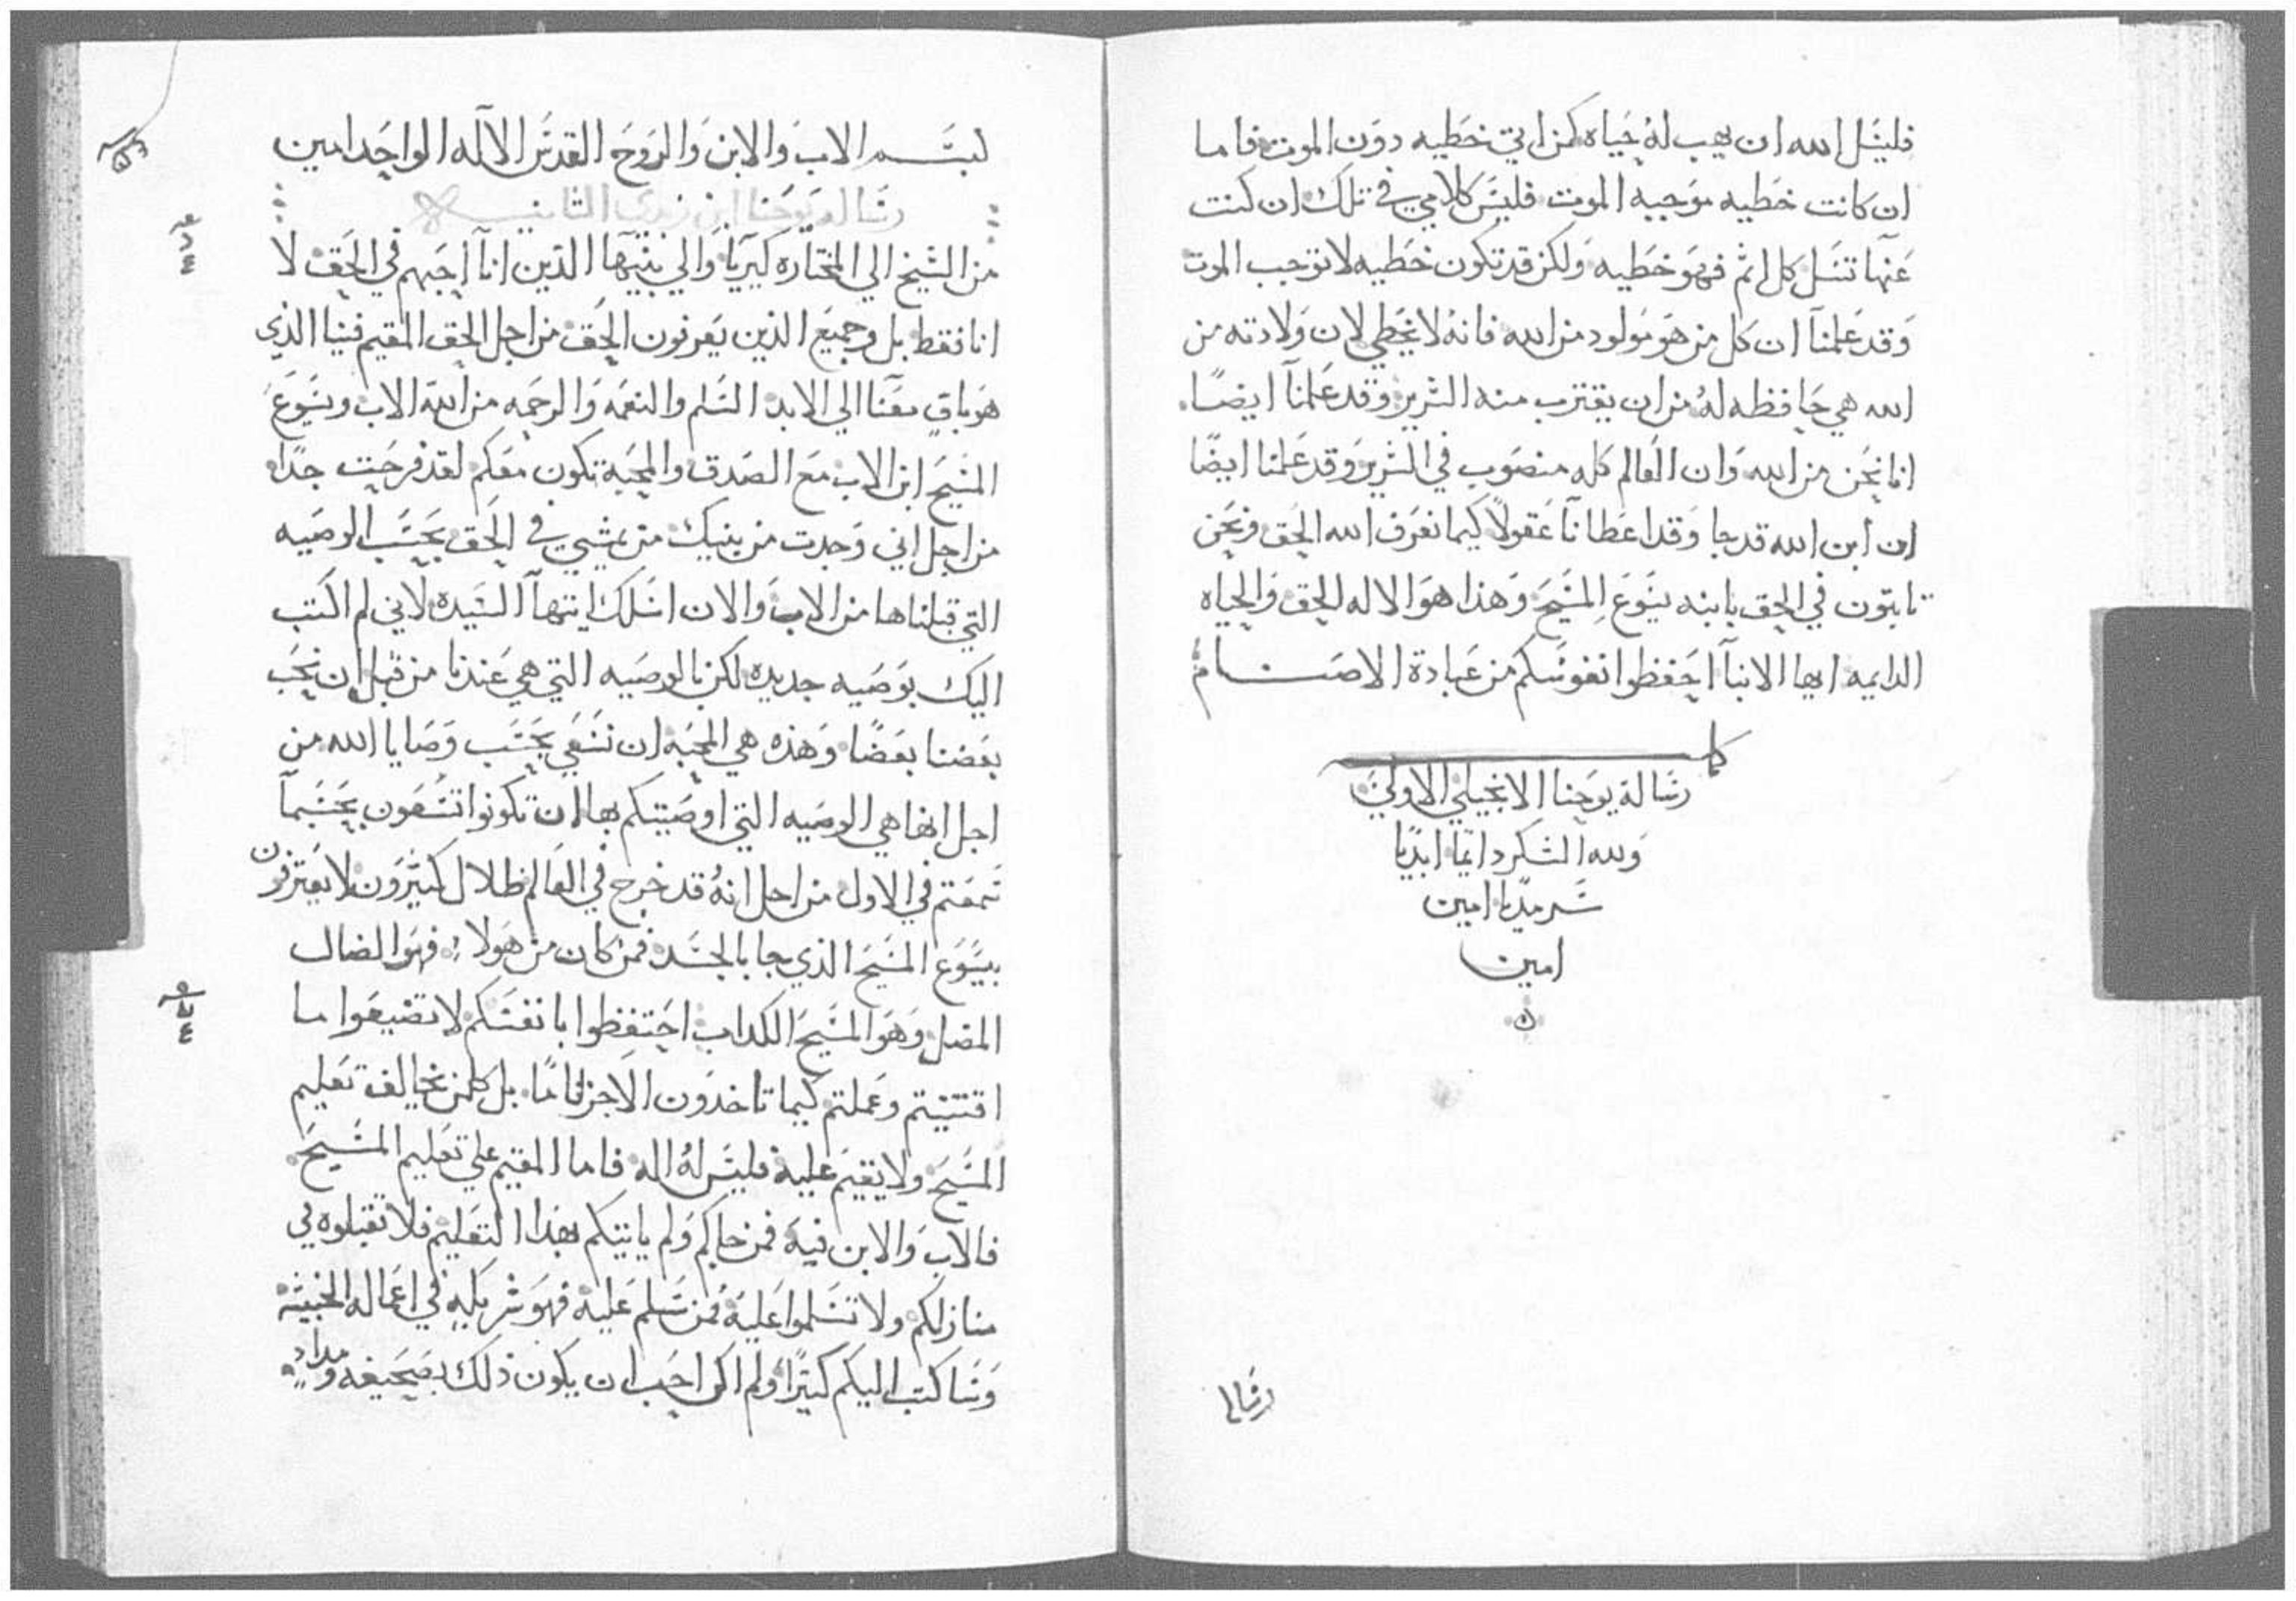 فليسل الله ان يهب لهُ حياه كمن اتي خطيه دون الموت فاما
ان كانت خطيه موجبه الموت فليس كلامي في تلك ان كنت
عنها تسل كل اثم فهو خطيه ولكن قد تكون خطيه لا توجب الموت
وقد علمنا ان كل من هو مولود من الله فانهُ لا يخطي لان ولادته من
الله هي حافظه لهُ من ان يقترب منه الشرير وقد علمنا ايضًا
اننا نحن من الله وان العالم كله منصوب في الشرير وقد علمنا ايضًا
ان ابن الله قد جا وقد اعطانا عقولًا كيما نعرف الله الحق ونحن
ثابتون في الحق بابنه يسوع المسيح وهذا هو الاله الحق والحياه
الدايمه ايها الابنا احفظوا نفوسكم من عبادة الاصنام
كملت
رسالة يوحنا الانجيلي الاولي
ولله الشكر دايمًا ابديًا
سرمديًا امين
امين
رسالة
بسم الاب والابن والروح القدس الاله الواحد امين
رسالة يوحنا ابن زبدي الثانيه
من الشيخ الي المختاره كيريا والي بنيها الذين انا احبهم في الحق لا
انا فقط بل وجميع الذين يعرفون الحق من اجل الحق المقيم فينا الذي
هو باقٍ معنا الي الابد السلم والنعمه والرحمه من الله الاب ويسوع
المسيح ابن الاب مع الصدق والمحبه تكون معكم لقد فرحت جدًا
من اجل اني وجدت من بنيك من يمشي في الحق بحسب الوصيه
التي قبلناها من الاب والان اسلك ايتها السيده لا اني لم اكتب
اليك بوصيه جديده لكن بالوصيه التي هي عندنا من قبل ان نحب
بعضنا بعضًا وهذه هي المحبه ان نسعي بحسب وصايا الله من
اجل انها هي الوصيه التي اوصيتكم بها ان تكونوا تسعون بحسبما
سمعتم في الاول من اجل انهُ قد خرج في العالم ظلال كثيرون لا يعترفون
بيسوع المسيح الذي جا بالجسد فمن كان من هولا فهو الضال
المضل وهو المسيح الكداب احتفظوا بانفسكم لا تضيعوا ما
اقتنيتم وعملتم كيما تاخدون الاجر تامًا بل كلمن يخالف تعليم
المسيح ولا يقيم عليه فليس لهُ اله فاما المقيم علي تعليم المسيح
فالاب والابن فيه فمن جاكم ولم ياتيكم بهذا التعليم فلا تقبلوه في
منازلكم ولا تسلموا عليه فمن سلم عليه فهو شريكه في اعماله الخبيثه
وسا كتب اليكم كثيرًا ولم اكن احب ان يكون ذلك بصحيفه ومدادٍ